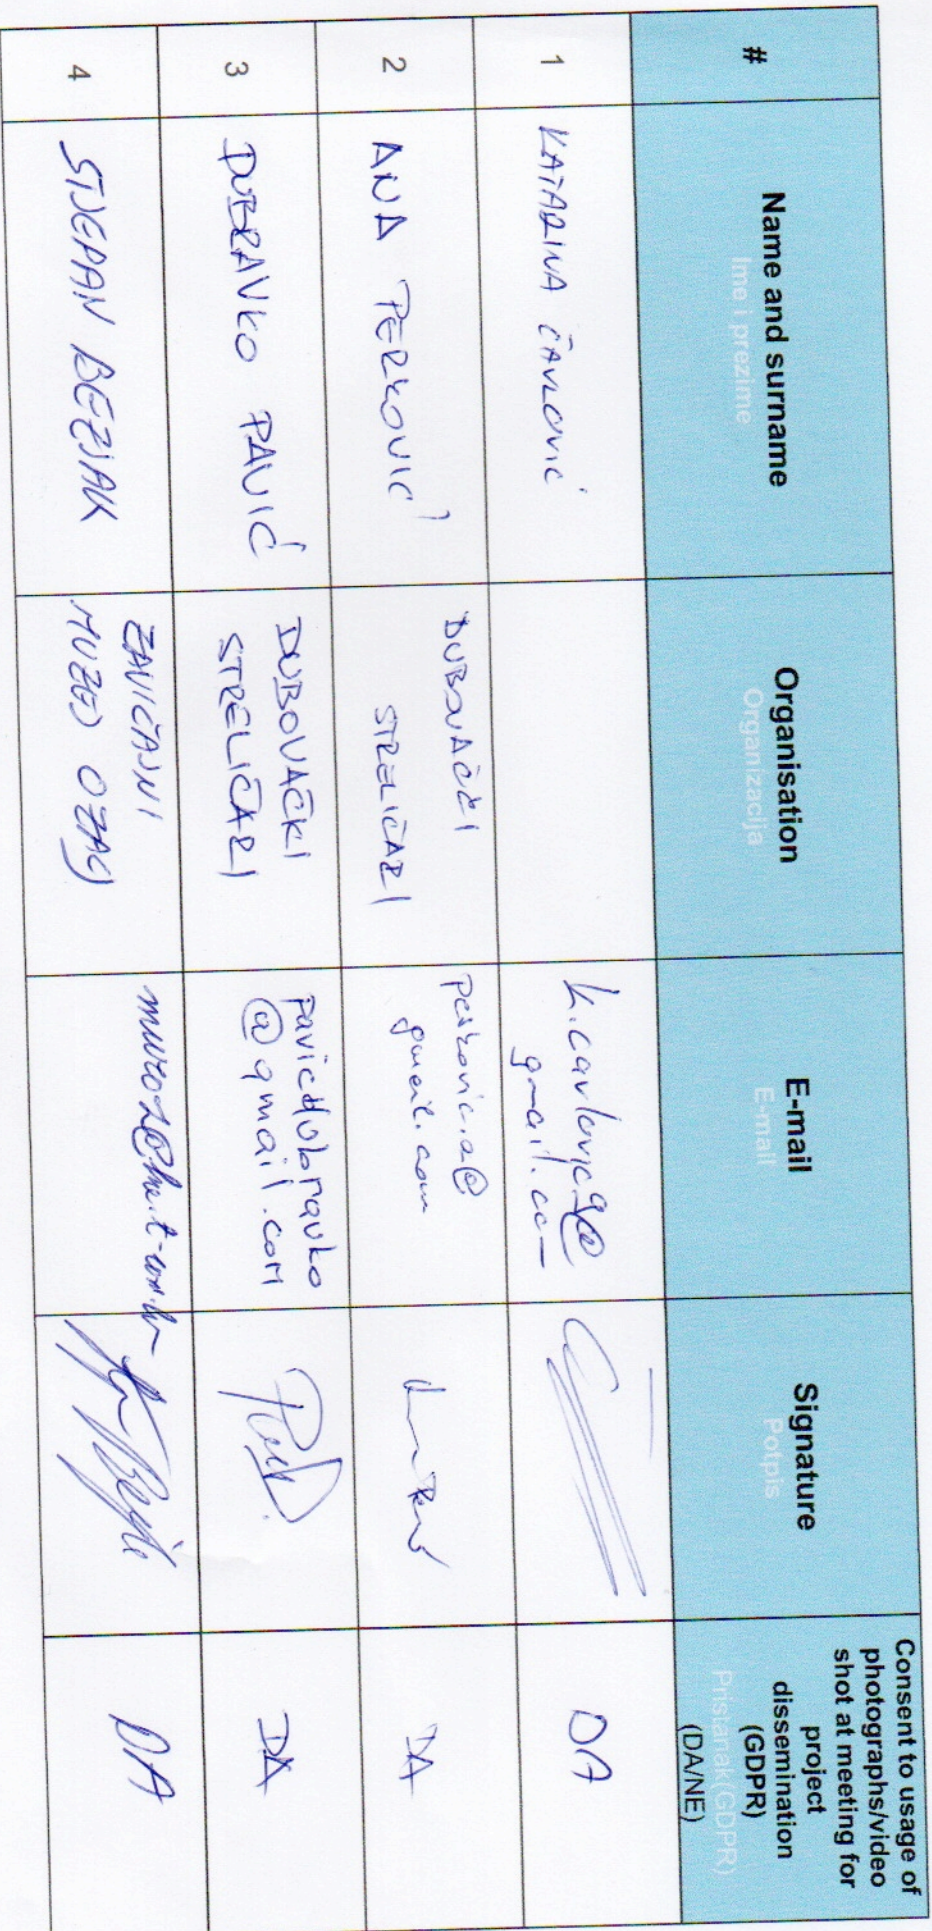 #
Name and surname
Ime i prezime
Organisation
Organizacija
E-mail
E-mail
Signature
Potpis
Consent to usage of
photographs/video
shot at meeting for
project
dissemination
(GDPR)
Pristanak(GDPR)
(DA/NE)
1
KATARINA ČAVLOVIĆ
k.cavlovic9@
gmail.com
DA
2
ANA PERKOVIĆ
DUBOVAČKI
STRELIČARI
perkovic.a@
gmail.com
DA
3
DUBRAVKO PAVIĆ
DUBOVAČKI
STRELIČARI
pavicdubravko
@gmail.com
DA
4
STJEPAN BEZJAK
ZAVIČAJNI
MUZEJ OZALJ
DA